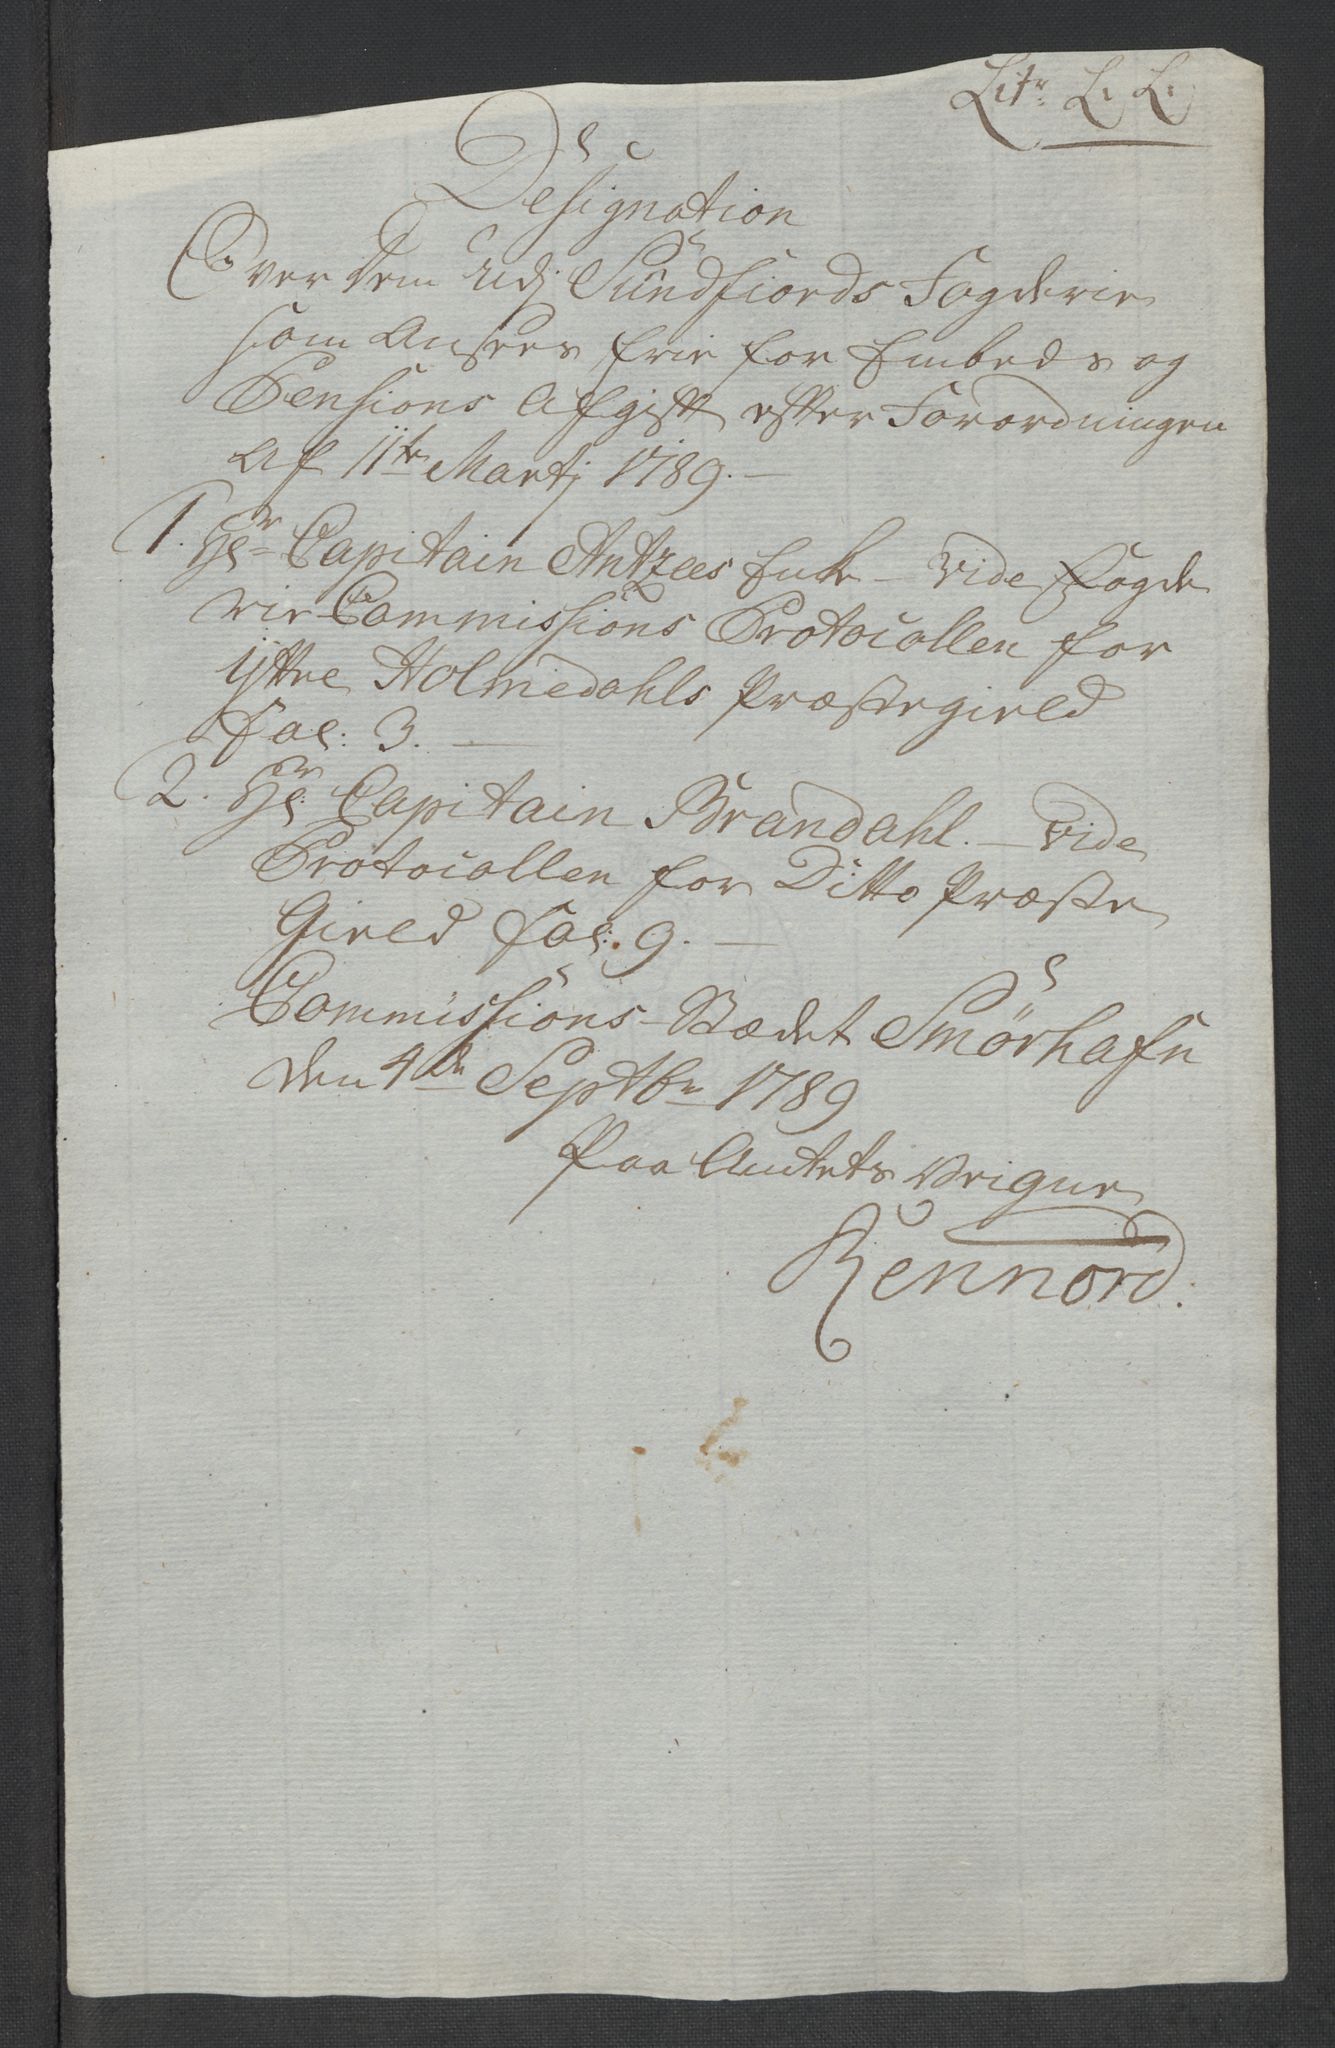 Litr. L. L.
Designation
Over dem udj Sundfiords Fogderie
som ansees frie for Embeds og
Pensions Afgift efter Forordningen
af 11te Martj 1789. –
1. Hr. Capitain Antzees Enke – vide Fogde
rie Commissions Protocollen for
Yttre Holmedahls Præstegield
Fol: 3. –
2. Hr. Capitain Brandahl. – vide
Protocollen for Ditto Præste
Gield Fol: 9. –
Commissions-Stædet Smörhafn
den 4de Septbr 1789
Paa Amtets Vegne
Rennord.